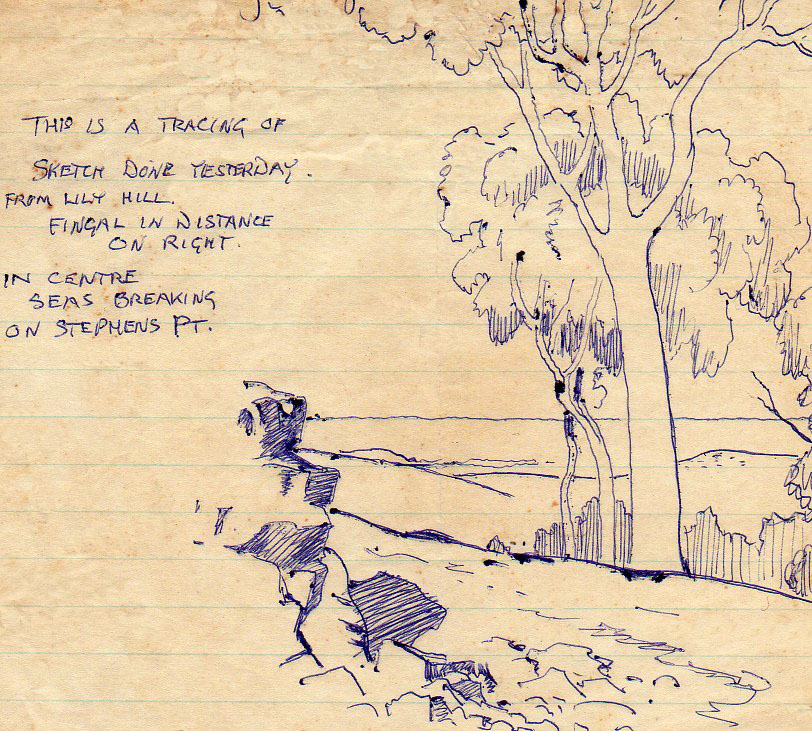 THIS IS A TRACING OF
SKETCH DONE YESTERDAY.
FROM LILY HILL.
FINGAL IN DISTANCE
ON RIGHT.
IN CENTRE
SEAS BREAKING
ON STEPHENS PT.